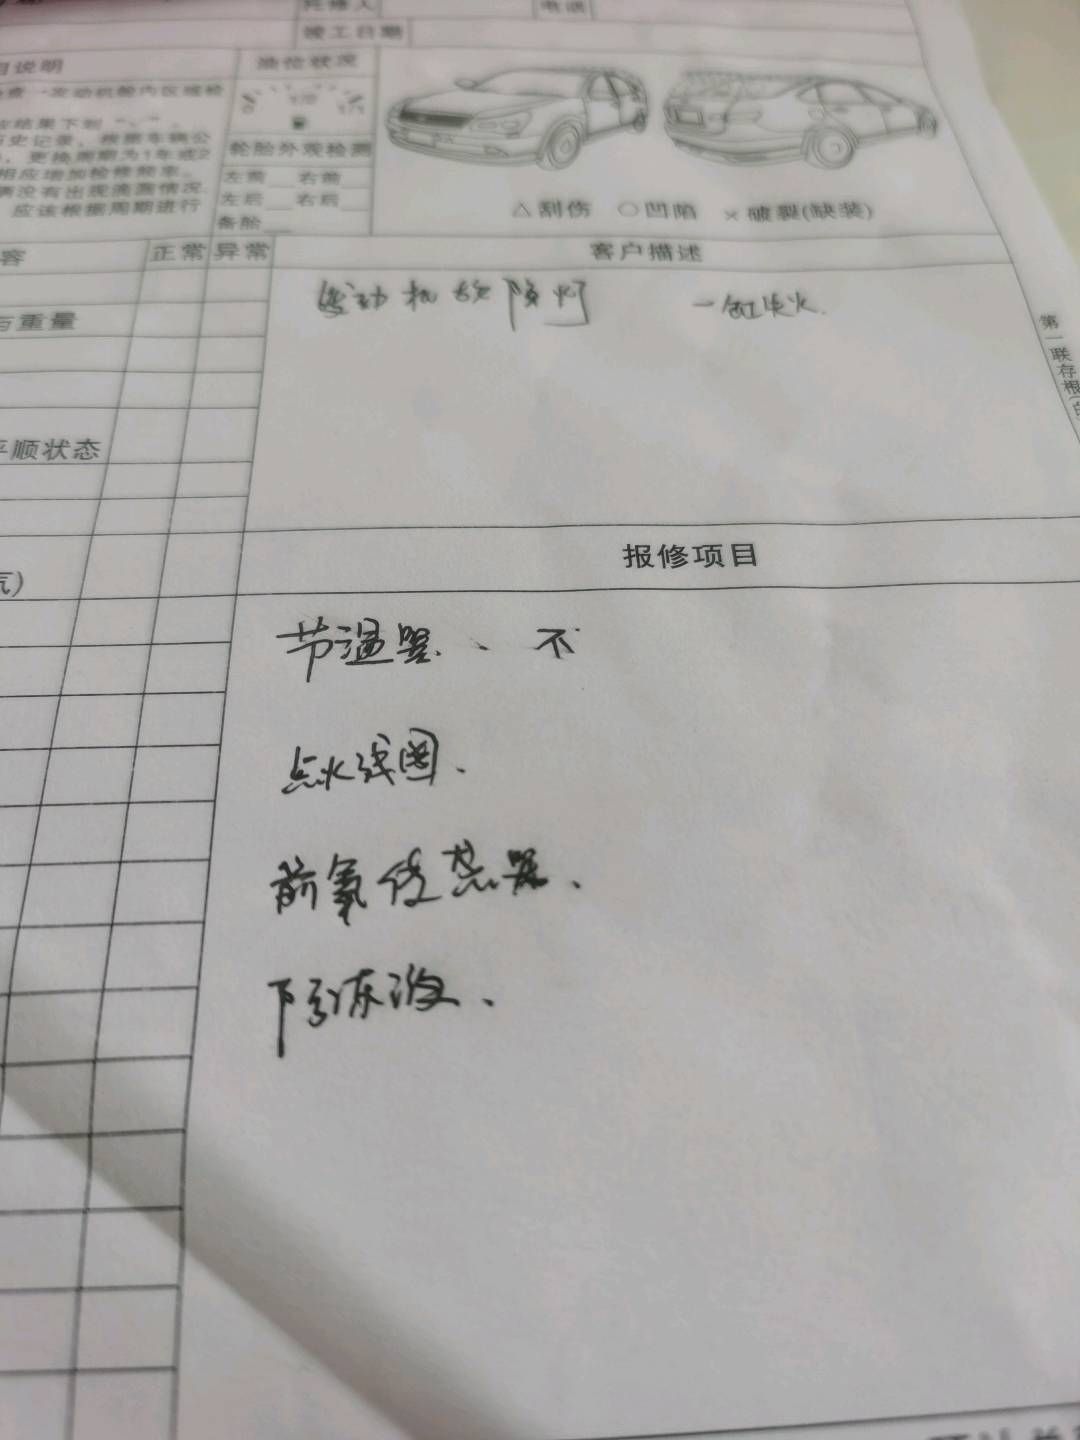 托修人 电话
竣工日期
目说明 油位状况
查一发动机舱内区域检
应结果下划"✓"。
历史记录，根据车辆公
，更换周期为1年或2
相应增加检修频率。
辆没有出现滴漏情况，
应该根据周期进行
轮胎外观检测
左前 右前
左后 右后
备胎
△刮伤 ○凹陷 ×破裂(缺装)
容 正常 异常 客户描述
发动机故障灯 一缸失火.
与重量
第一联存根
平顺状态
报修项目
气)
节温器、不
点火线圈.
前氧传感器、
防冻液、